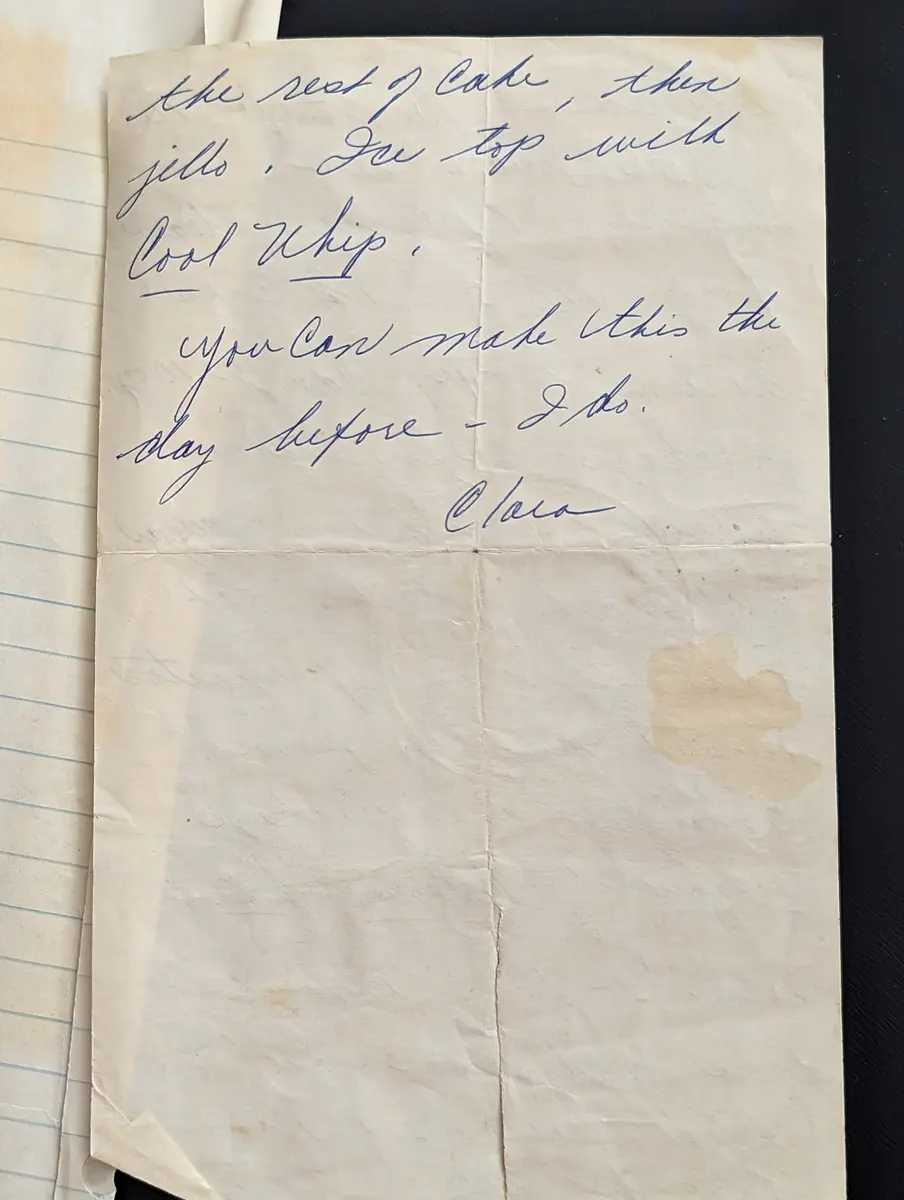 the rest of Cake, then
jello. Ice top with
Cool Whip.
You Can make this the
day before - I do.
Clara